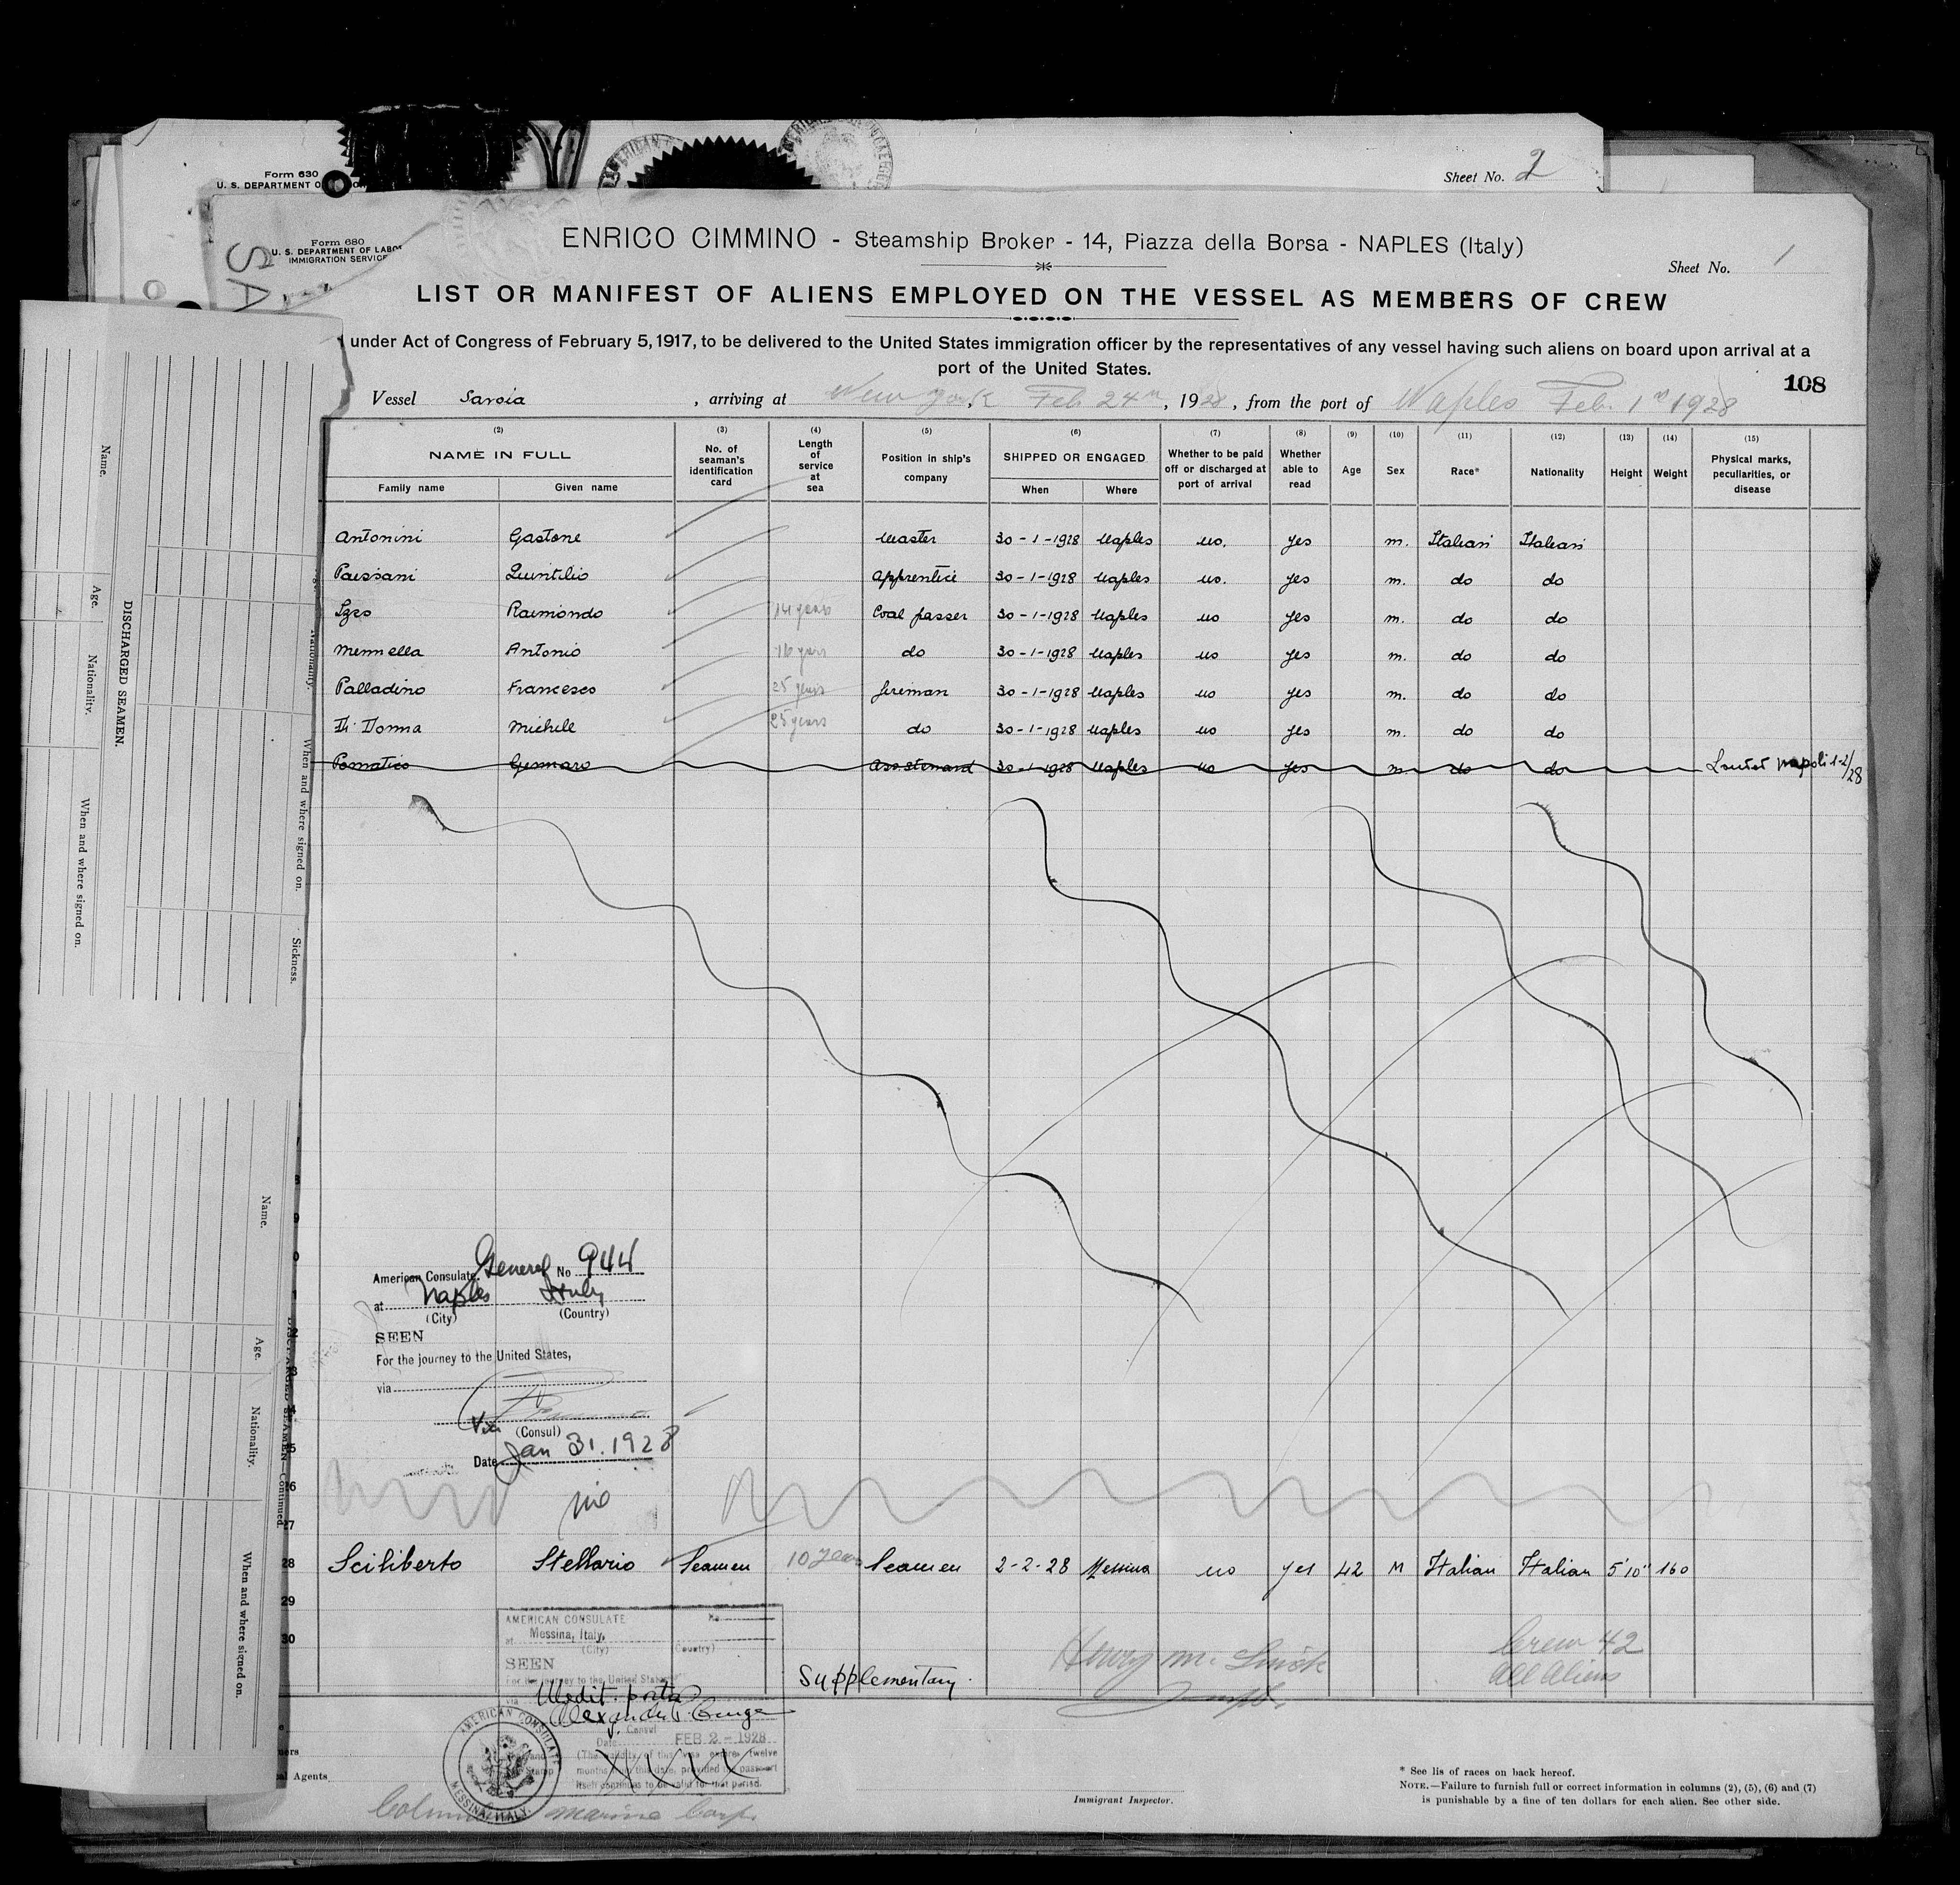 Form 630
U. S. DEPARTMENT O
Sheet No. 2
Form 680
U. S. DEPARTMENT OF LABO
IMMIGRATION SERVICE
ENRICO CIMMINO - Steamship Broker - 14, Piazza della Borsa - NAPLES (Italy)
Sheet No. 1
LIST OR MANIFEST OF ALIENS EMPLOYED ON THE VESSEL AS MEMBERS OF CREW
under Act of Congress of February 5, 1917, to be delivered to the United States immigration officer by the representatives of any vessel having such aliens on board upon arrival at a
port of the United States.
108
Vessel Savoia, arriving at New York Feb 24th, 1928, from the port of Naples Feb. 1st 1928
(2) (3) (4) (5) (6) (7) (8) (9) (10) (11) (12) (13) (14) (15)
NAME IN FULL
Family name
Given name
No. of seaman's identification card
Length of service at sea
Position in ship's company
SHIPPED OR ENGAGED
When
Where
Whether to be paid off or discharged at port of arrival
Whether able to read
Age
Sex
Race*
Nationality
Height
Weight
Physical marks, peculiarities, or disease
Antonini Gastone Master 30-1-1928 Naples no. yes m. Italian Italian
Paesani Quintilio apprentice 30-1-1928 Naples no. yes m. do do
Raimondo 14 years Coal passer 30-1-1928 Naples no yes m. do do
Mennella Antonio 16 years do 30-1-1928 Naples no yes m. do do
Palladino Francesco 25 years fireman 30-1-1928 Naples no yes m. do do
Di Donna Michele 25 years do 30-1-1928 Naples no yes m. do do
Pomatico Gennaro Ass. steward 30-1-1928 Naples no yes m do do Napoli 1-2/28
American Consulate General No 944
at Naples Italy
(City) (Country)
SEEN
For the journey to the United States,
via
Vice (Consul)
Date Jan 31. 1928
28 Sciliberto Stellario Seamen 10 years Seamen 2-2-28 Messina no yes 42 M Italian Italian 5'10" 160
29
30
AMERICAN CONSULATE No
at Messina, Italy,
(City) (Country)
SEEN
For the journey to the United States
via Medit. ports
Consul
Date FEB 2 - 1928
(The validity of this visa expires twelve
months from this date, provided the passport
itself continues to be valid for that period.
AMERICAN CONSULATE
MESSINA, ITALY.
Supplementary.
Crew 42
All Aliens
l Agents
Marine Corp.
Immigrant Inspector.
* See lis of races on back hereof.
NOTE.—Failure to furnish full or correct information in columns (2), (5), (6) and (7)
is punishable by a fine of ten dollars for each alien. See other side.
DISCHARGED SEAMEN.
Name.
Age.
Nationality.
When and where signed on.
Nationality.
When and where signed on.
Sickness.
DISCHARGED SEAMEN—Continued.
Name.
Age.
Nationality.
When and where signed on.